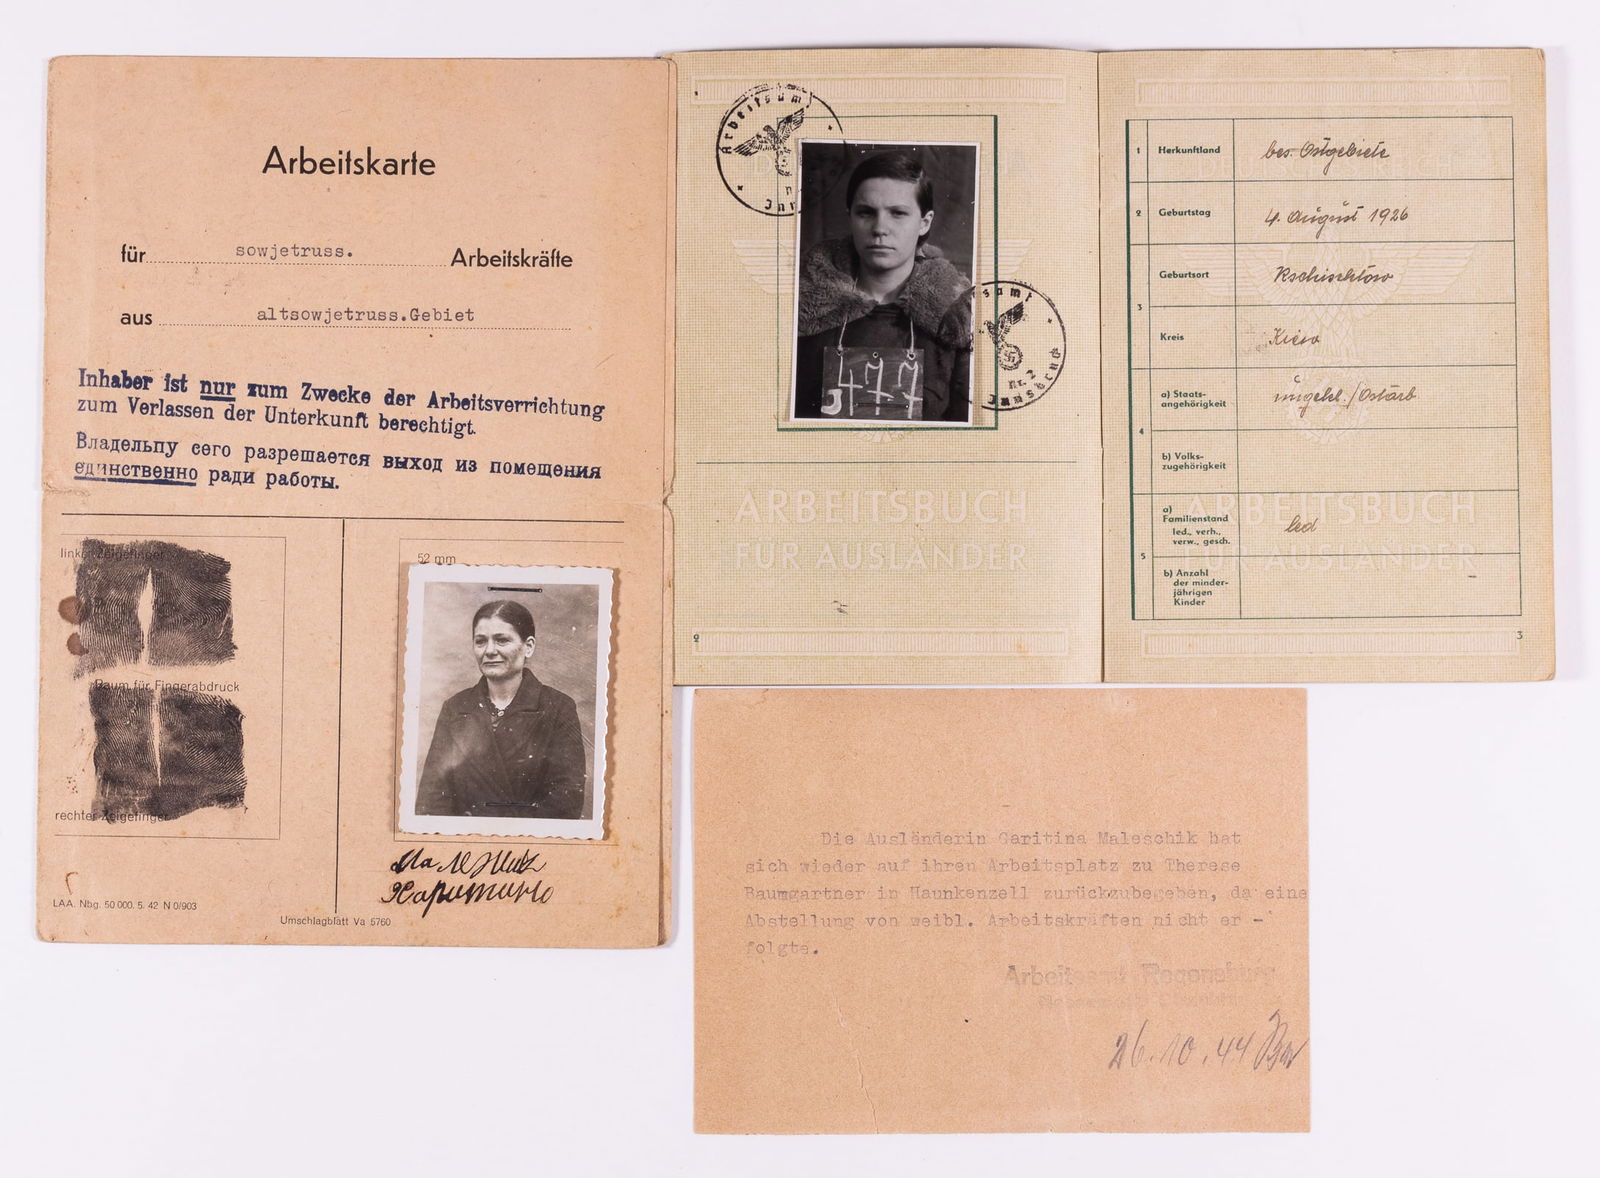 Arbeitskarte
für sowjetruss. Arbeitskräfte
aus altsowjetruss.Gebiet
Inhaber ist nur zum Zwecke der Arbeitsverrichtung
zum Verlassen der Unterkunft berechtigt.
Владельцу сего разрешается выход из помещения
единственно ради работы.
linker Zeigefinger
Raum für Fingerabdruck
rechter Zeigefinger
52 mm
Харитина
LAA. Nbg. 50 000. 5. 42 N 0/903
Umschlagblatt Va 5760
Arbeitsamt
J477
Nr. 2
ARBEITSBUCH
FÜR AUSLÄNDER
2
1 Herkunftland bes. Ostgebiete
2 Geburtstag 4. August 1926
3 Geburtsort
Kreis Kiew
4 a) Staats-
angehörigkeit ungekl./Ostarb.
b) Volks-
zugehörigkeit
5 a)
Familienstand
led., verh.,
verw., gesch. led
b) Anzahl
der minder-
jährigen
Kinder
ARBEITSBUCH
FÜR AUSLÄNDER
3
Die Ausländerin Caritina Maleschik hat
sich wieder auf ihren Arbeitsplatz zu Therese
Baumgartner in Haunkenzell zurückzubegeben, da eine
Abstellung von weibl. Arbeitskräften nicht er -
folgte.
Arbeitsamt Regensburg
26.10.44